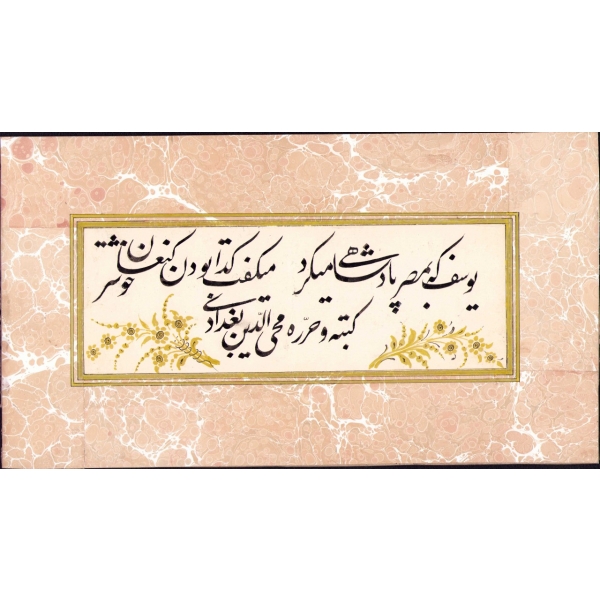 یوسف که بمصر پادشاهی میکرد میگفت گدا بودن کنعان خوشتر
کتبه و حرّره محی الدّین بغدادی